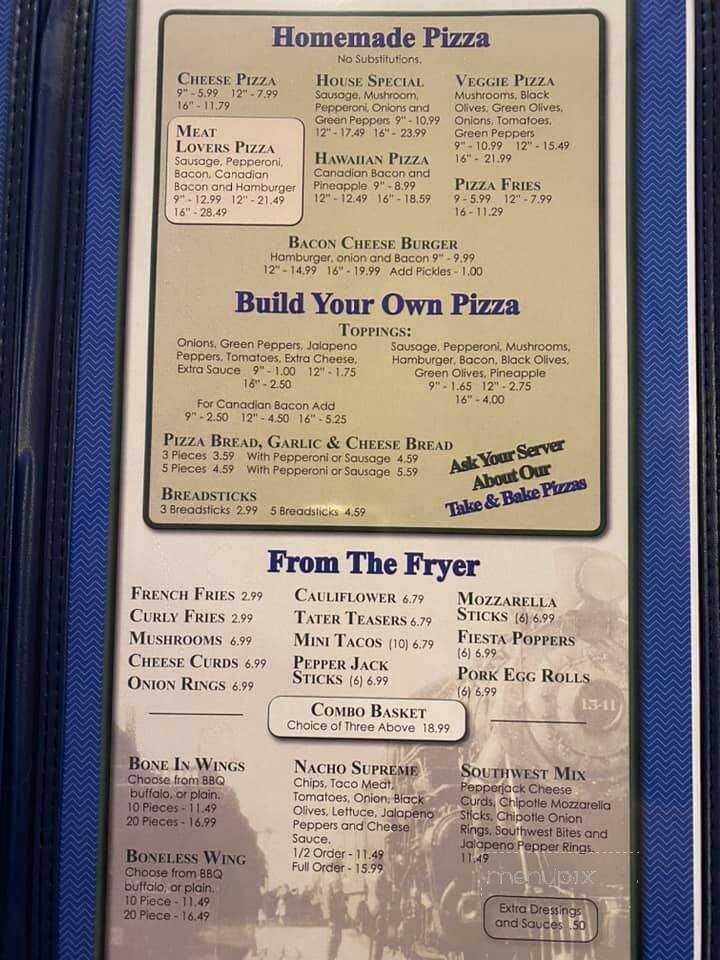 Homemade Pizza
No Substitutions.
CHEESE PIZZA
9" - 5.99 12" - 7.99
16" - 11.79
MEAT
LOVERS PIZZA
Sausage, Pepperoni,
Bacon, Canadian
Bacon and Hamburger
9" - 12.99 12" - 21.49
16" - 28.49
HOUSE SPECIAL
Sausage, Mushroom,
Pepperoni, Onions and
Green Peppers 9" - 10.99
12" - 17.49 16" - 23.99
HAWAIIAN PIZZA
Canadian Bacon and
Pineapple 9" - 8.99
12" - 12.49 16" - 18.59
VEGGIE PIZZA
Mushrooms, Black
Olives, Green Olives,
Onions, Tomatoes,
Green Peppers
9" - 10.99 12" - 15.49
16" - 21.99
PIZZA FRIES
9 - 5.99 12" - 7.99
16 - 11.29
BACON CHEESE BURGER
Hamburger, onion and Bacon 9" - 9.99
12" - 14.99 16" - 19.99 Add Pickles - 1.00
Build Your Own Pizza
TOPPINGS:
Onions, Green Peppers, Jalapeno
Peppers, Tomatoes, Extra Cheese,
Extra Sauce 9" - 1.00 12" - 1.75
16" - 2.50
For Canadian Bacon Add
9" - 2.50 12" - 4.50 16" - 5.25
Sausage, Pepperoni, Mushrooms,
Hamburger, Bacon, Black Olives,
Green Olives, Pineapple
9" - 1.65 12" - 2.75
16" - 4.00
PIZZA BREAD, GARLIC & CHEESE BREAD
3 Pieces 3.59 With Pepperoni or Sausage 4.59
5 Pieces 4.59 With Pepperoni or Sausage 5.59
BREADSTICKS
3 Breadsticks 2.99 5 Breadsticks 4.59
Ask Your Server
About Our
Take & Bake Pizzas
From The Fryer
FRENCH FRIES 2.99
CURLY FRIES 2.99
MUSHROOMS 6.99
CHEESE CURDS 6.99
ONION RINGS 6.99
CAULIFLOWER 6.79
TATER TEASERS 6.79
MINI TACOS (10) 6.79
PEPPER JACK
STICKS (6) 6.99
MOZZARELLA
STICKS (6) 6.99
FIESTA POPPERS
(6) 6.99
PORK EGG ROLLS
(6) 6.99
1541
COMBO BASKET
Choice of Three Above 18.99
BONE IN WINGS
Choose from BBQ
buffalo, or plain.
10 Pieces - 11.49
20 Pieces - 16.99
BONELESS WING
Choose from BBQ
buffalo, or plain.
10 Piece - 11.49
20 Piece - 16.49
NACHO SUPREME
Chips, Taco Meat,
Tomatoes, Onion, Black
Olives, Lettuce, Jalapeno
Peppers and Cheese
Sauce.
1/2 Order - 11.49
Full Order - 15.99
SOUTHWEST MIX
Pepperjack Cheese
Curds, Chipotle Mozzarella
Sticks, Chipotle Onion
Rings, Southwest Bites and
Jalapeno Pepper Rings.
11.49
menupix
Extra Dressings
and Sauces .50